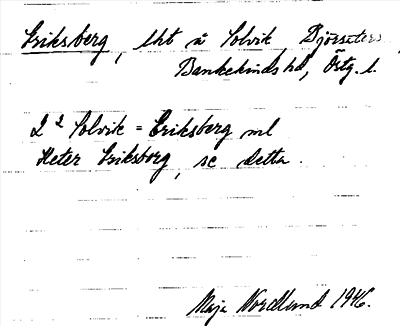 Eriksberg, lht å Solvik Björsäters
Bankekinds hd, Östg. l.
2² Solvik = Eriksberg ml
Heter Eriksberg, se detta.
Maja Nordlund 1946.